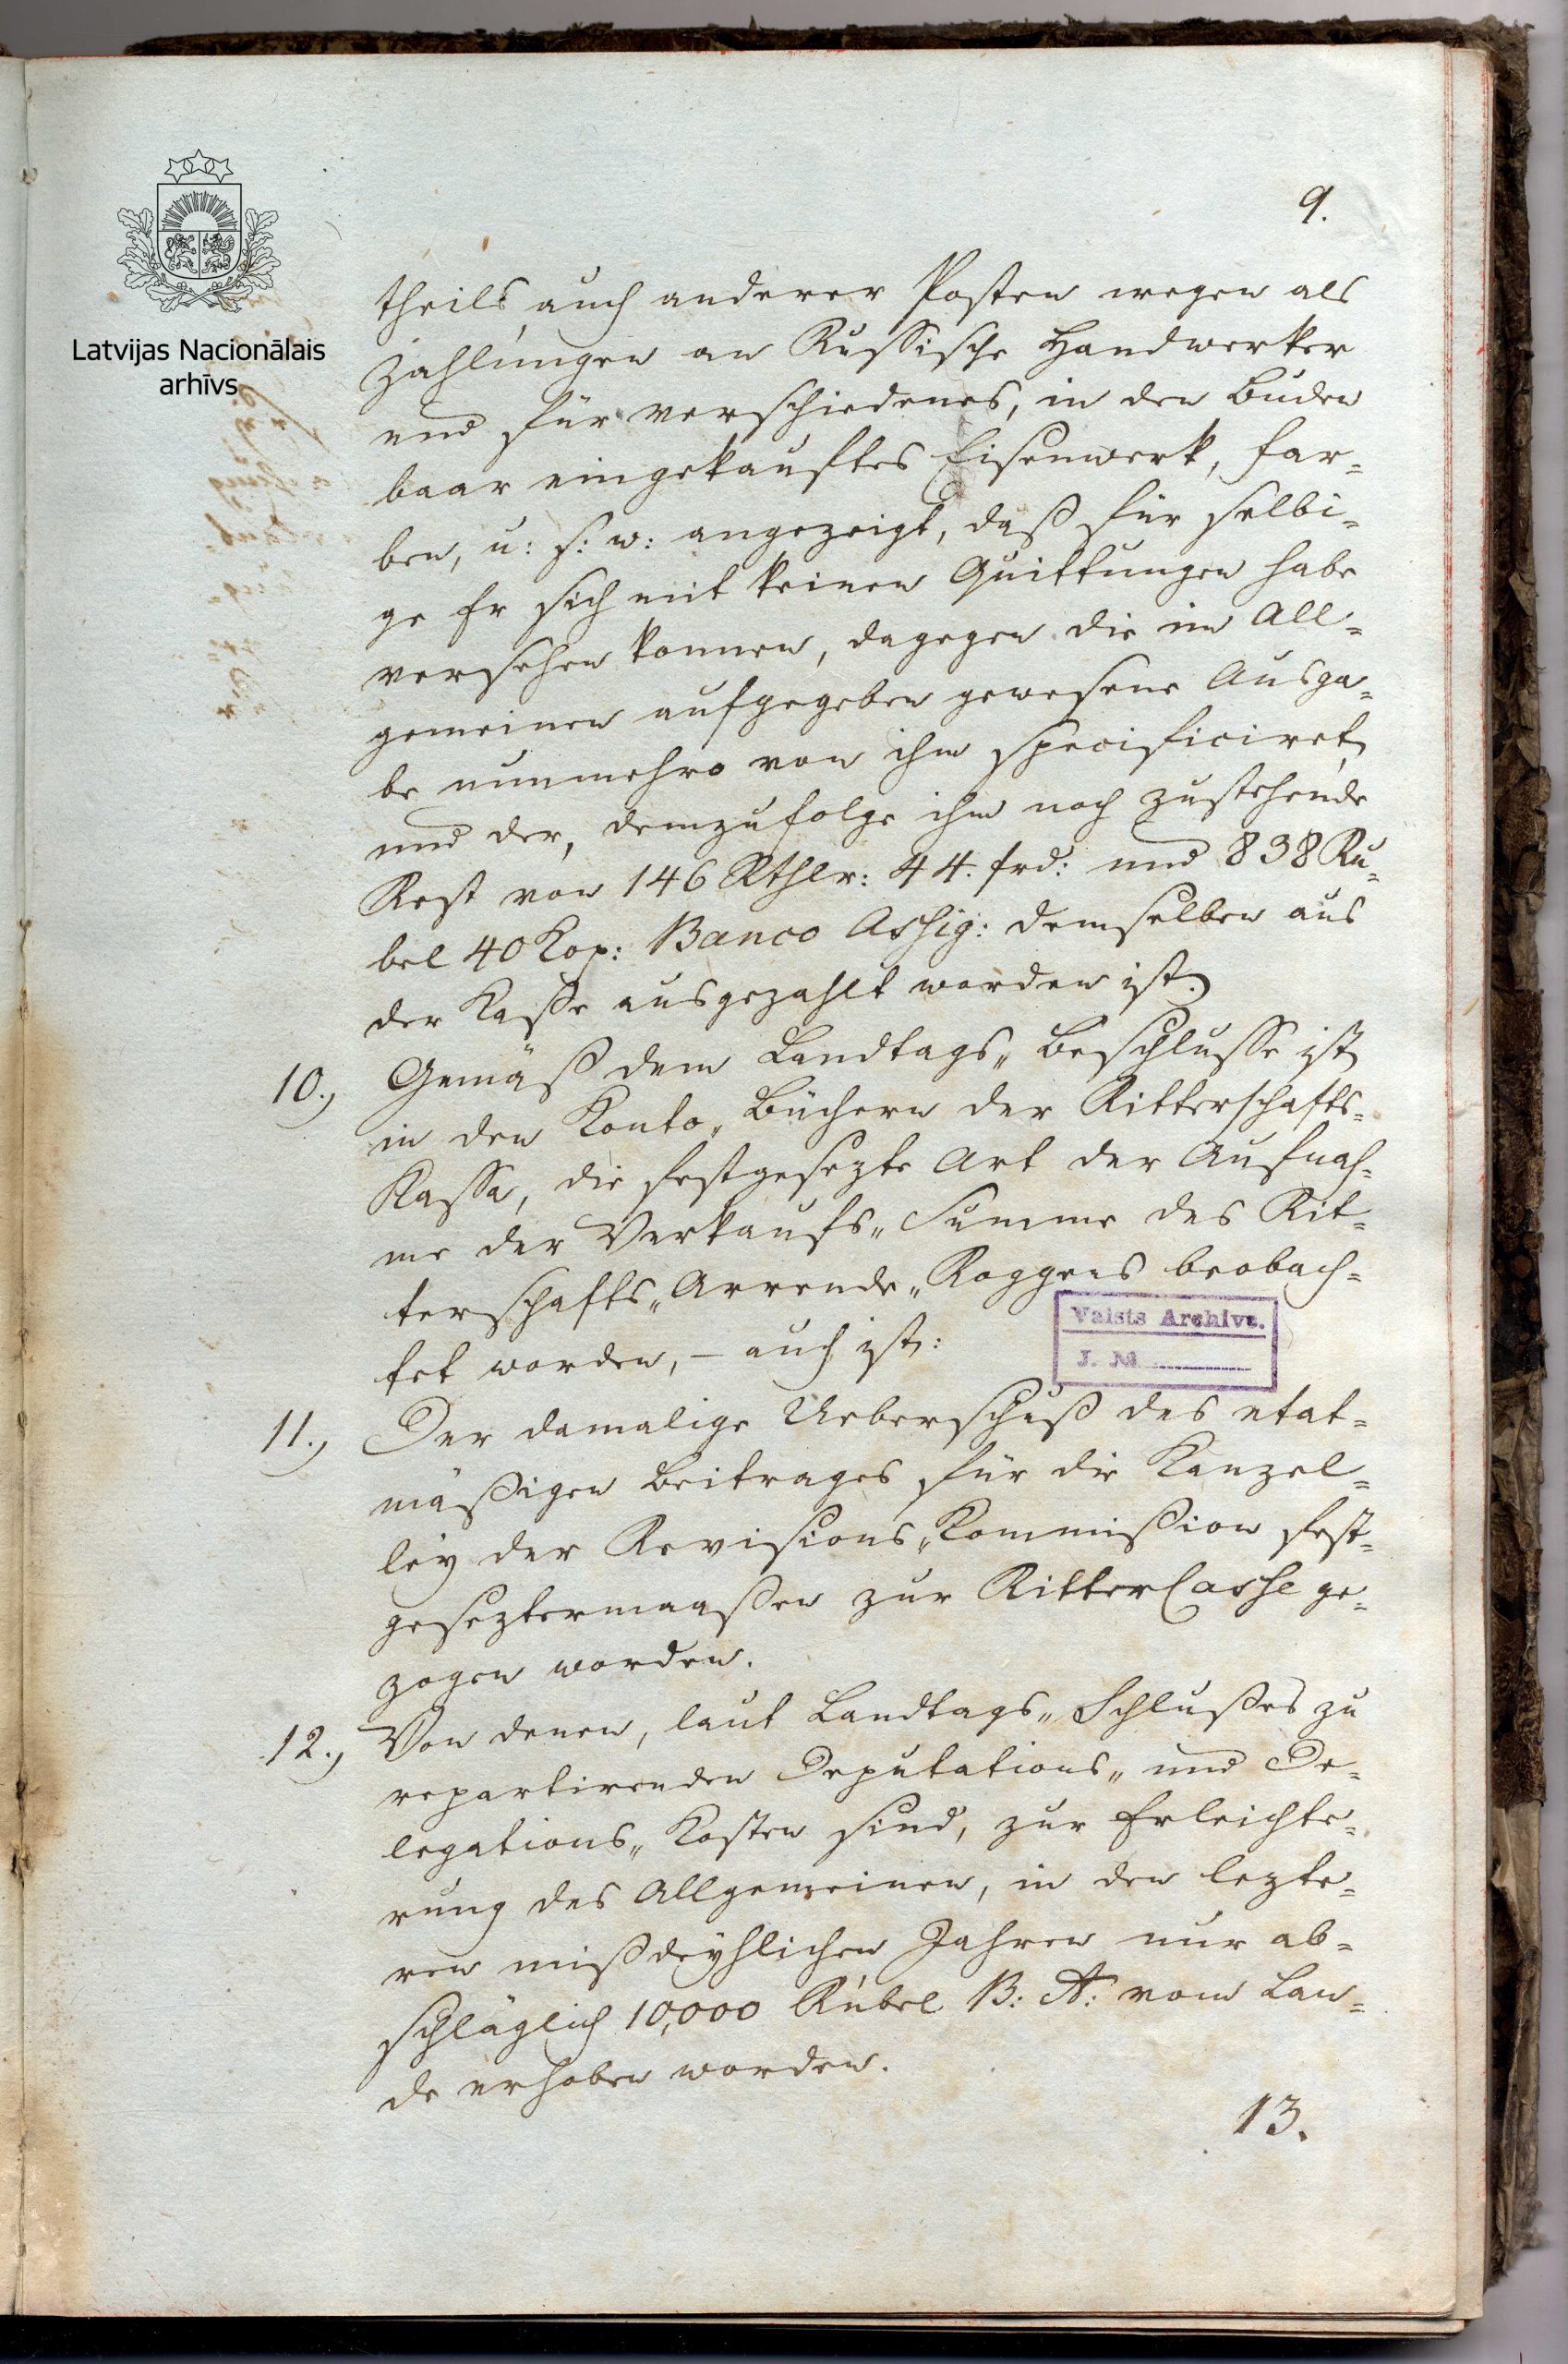 9.
Latvijas Nacionālais
arhīvs
theils, auch anderer Posten wegen als
Zahlungen an Russische Handwerker
und für verschiedenes, in den Buden
baar eingekauftes Eisenwerk, Far=
ben, u: s: w: angezeigt, daß für selbi=
ge Er sich mit keinen Quittungen habe
versehen konnen, dagegen die im All=
gemeinen aufgegeben gewesene Ausga=
be nunmehro von ihm specificiret,
und der, demzufolge ihm noch zustehende
Rest von 146 Rthlr: 44. frd: und 838 Ru=
bel 40 Kop: Banco Assig: demselben aus
der Kasse ausgezahlt worden ist.
10., Gemäß dem Landtags„ Beschlusse ist
in den Konto„ Büchern der Ritterschafts=
Kassa, die festgesezte Art der Aufnah=
me der Verkaufs„ Summe des Rit=
terschafts„ Arrende„ Roggens beobach=
tet worden, – auch ist:
Valsts Archivs.
J. №
11., Der damalige Ueberschuß des etat=
mäßigen Beitrages für die Kanzel=
ley der Revisions„ Kommißion fest=
geseztermaaßen zur RitterCasse ge=
zogen worden.
12., Von denen, laut Landtags„ Schlußes zu
repartirenden Deputations„ und De=
legations„ Kosten sind, zur Erleichte=
rung des Allgemeinen, in den lezte=
ren mißdeyhlichen Jahren nur ab=
schläglich 10,000 Rubel B: A: vom Lan=
de erhoben worden.
13.